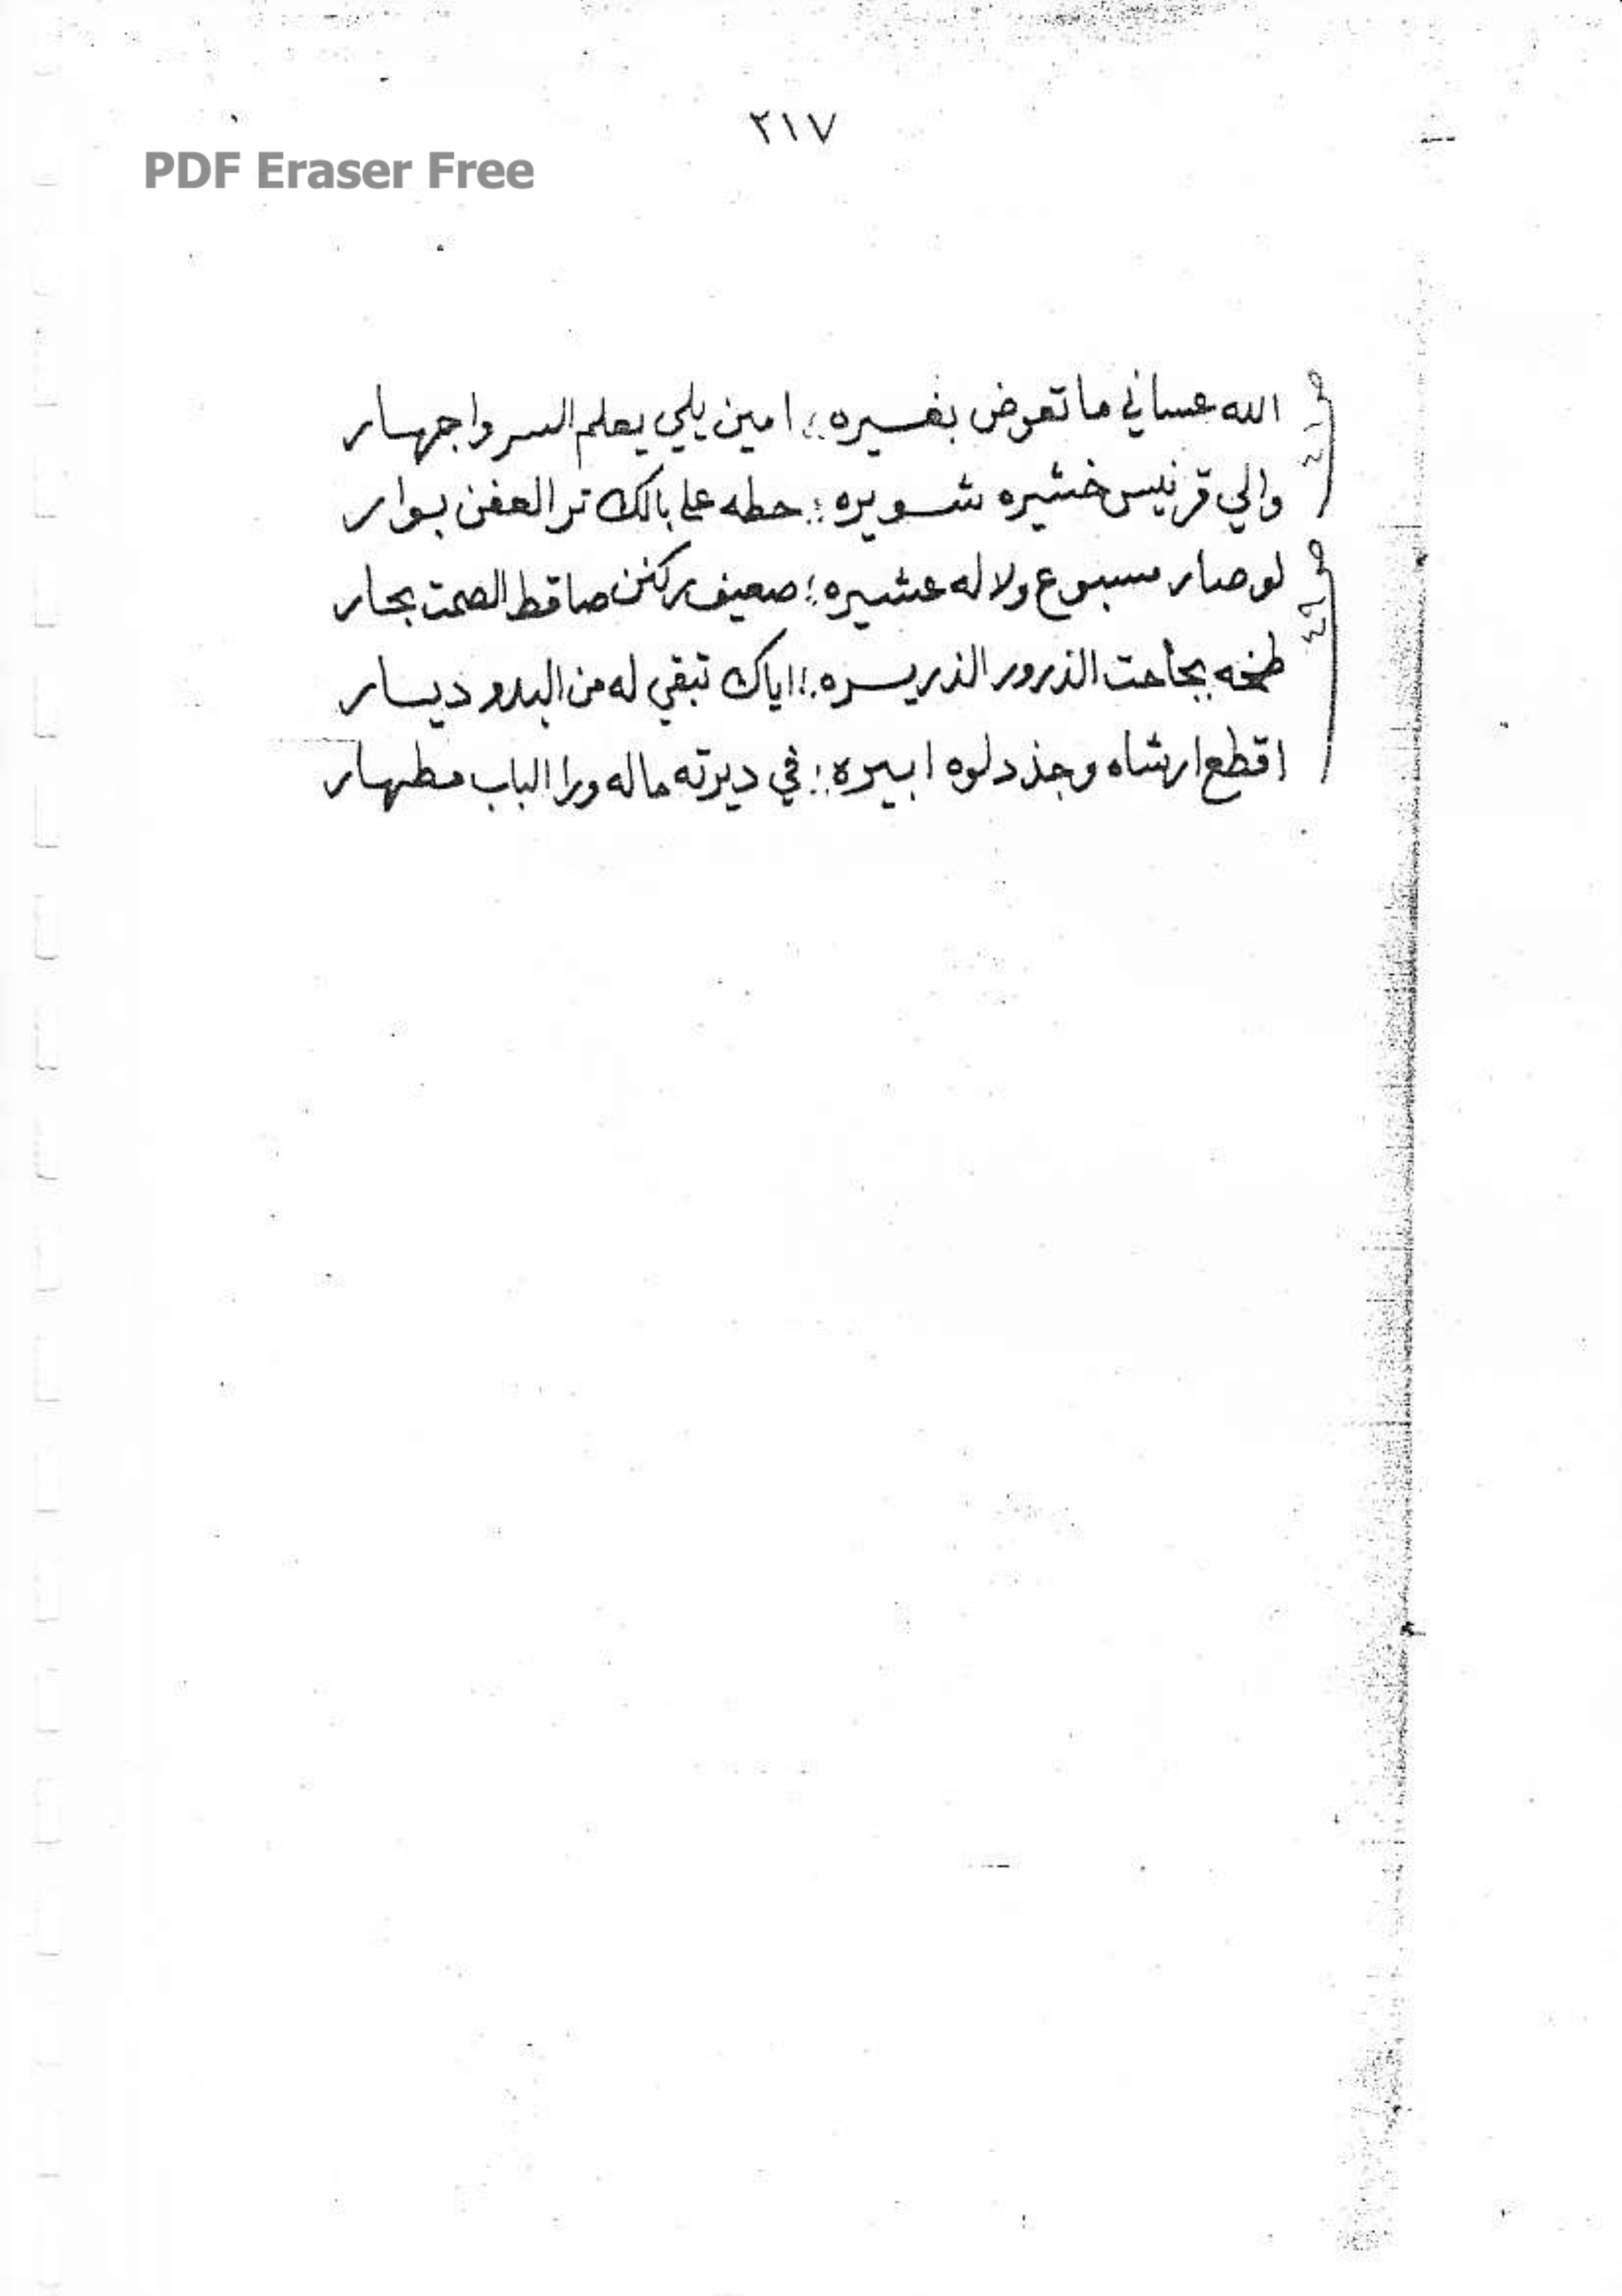 ٢١٧
PDF Eraser Free
الله عساني ما تعرض بغسيره ؛ امين يلي يعلم السر واجهار
والي قرنيس خشيره شويره ؛ حطه على بالك تر العفن بوار
لو صار مسبوع ولا له عشيره ؛ ضعيف ركنن صاقط الصمت بحار
طخه بجاحت الذرور الذريره ؛ اياك تبقي له من البدو ديار
اقطع ارشاه وجذ دلوه ابيره ؛ في ديرته ماله ورا الباب مطهار